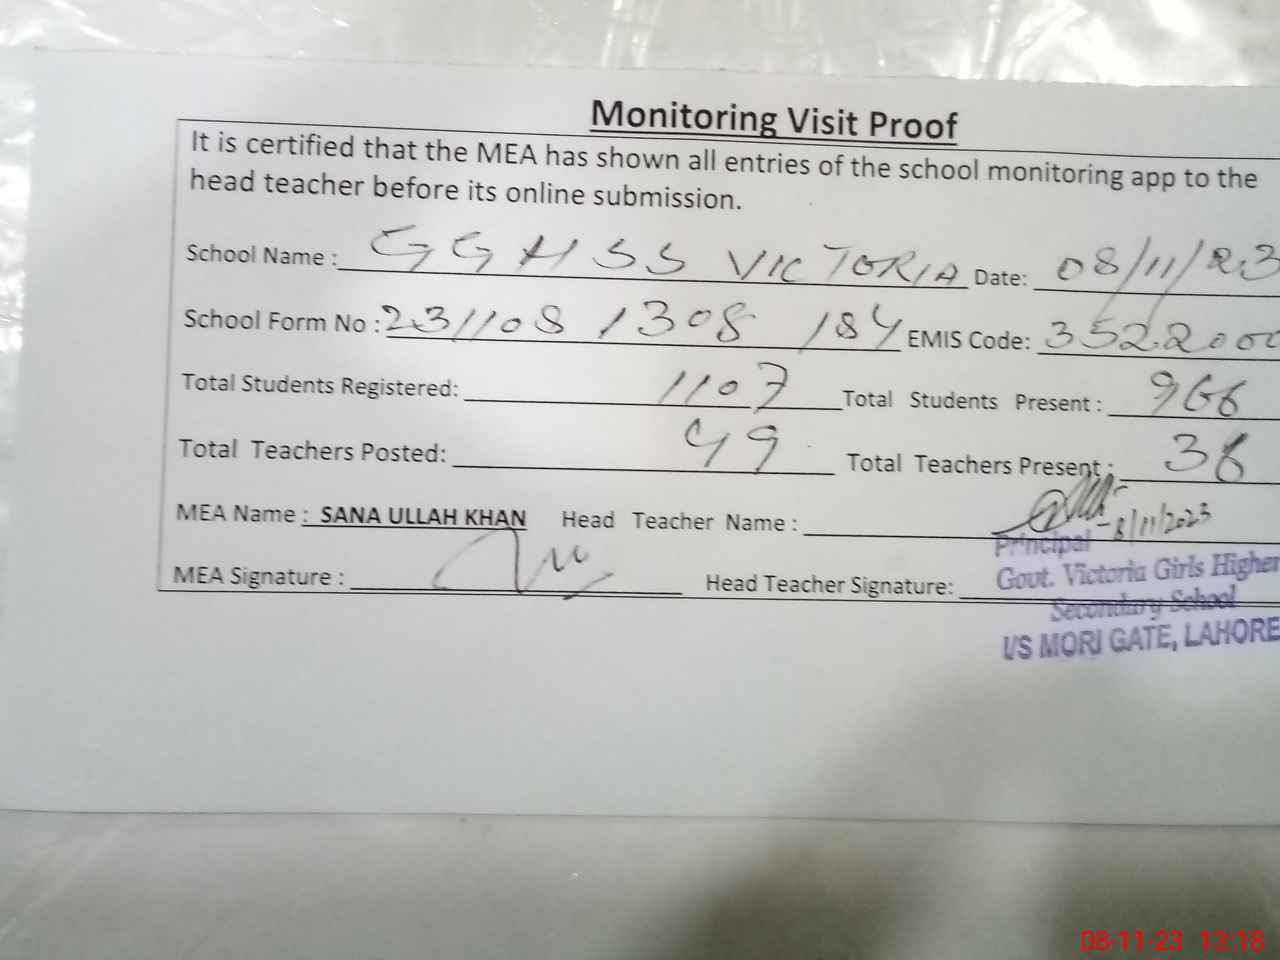 Monitoring Visit Proof
It is certified that the MEA has shown all entries of the school monitoring app to the
head teacher before its online submission.
School Name : GGHSS VICTORIA Date: 08/11/23
School Form No : 231108 1308 184 EMIS Code: 3522000
Total Students Registered: 1107 Total Students Present : 966
Total Teachers Posted: 49 Total Teachers Present : 36
MEA Name : SANA ULLAH KHAN Head Teacher Name : 8/11/2023
MEA Signature : Head Teacher Signature:
Principal
Govt. Victoria Girls Higher
Secondary School
I/S MORI GATE, LAHORE
08-11-23 13:18